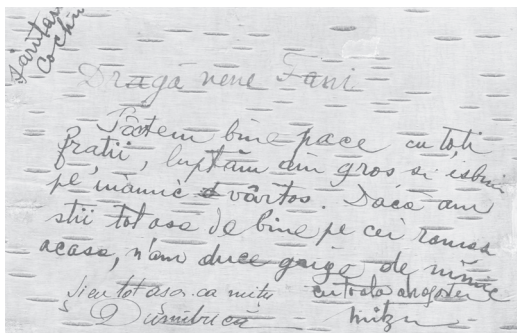 sărutări
Cochii
Dragă nene Fani
Sîntem bine pace cu toți
frații, luptăm din gros si isbim
pe inamic vârtos. Dacă am
stii tot asa de bine pe cei
acasa, n'am duce grige de nimic
Și eu tot asa ca mitu cu toată dragostea
Dumitru Mitzu